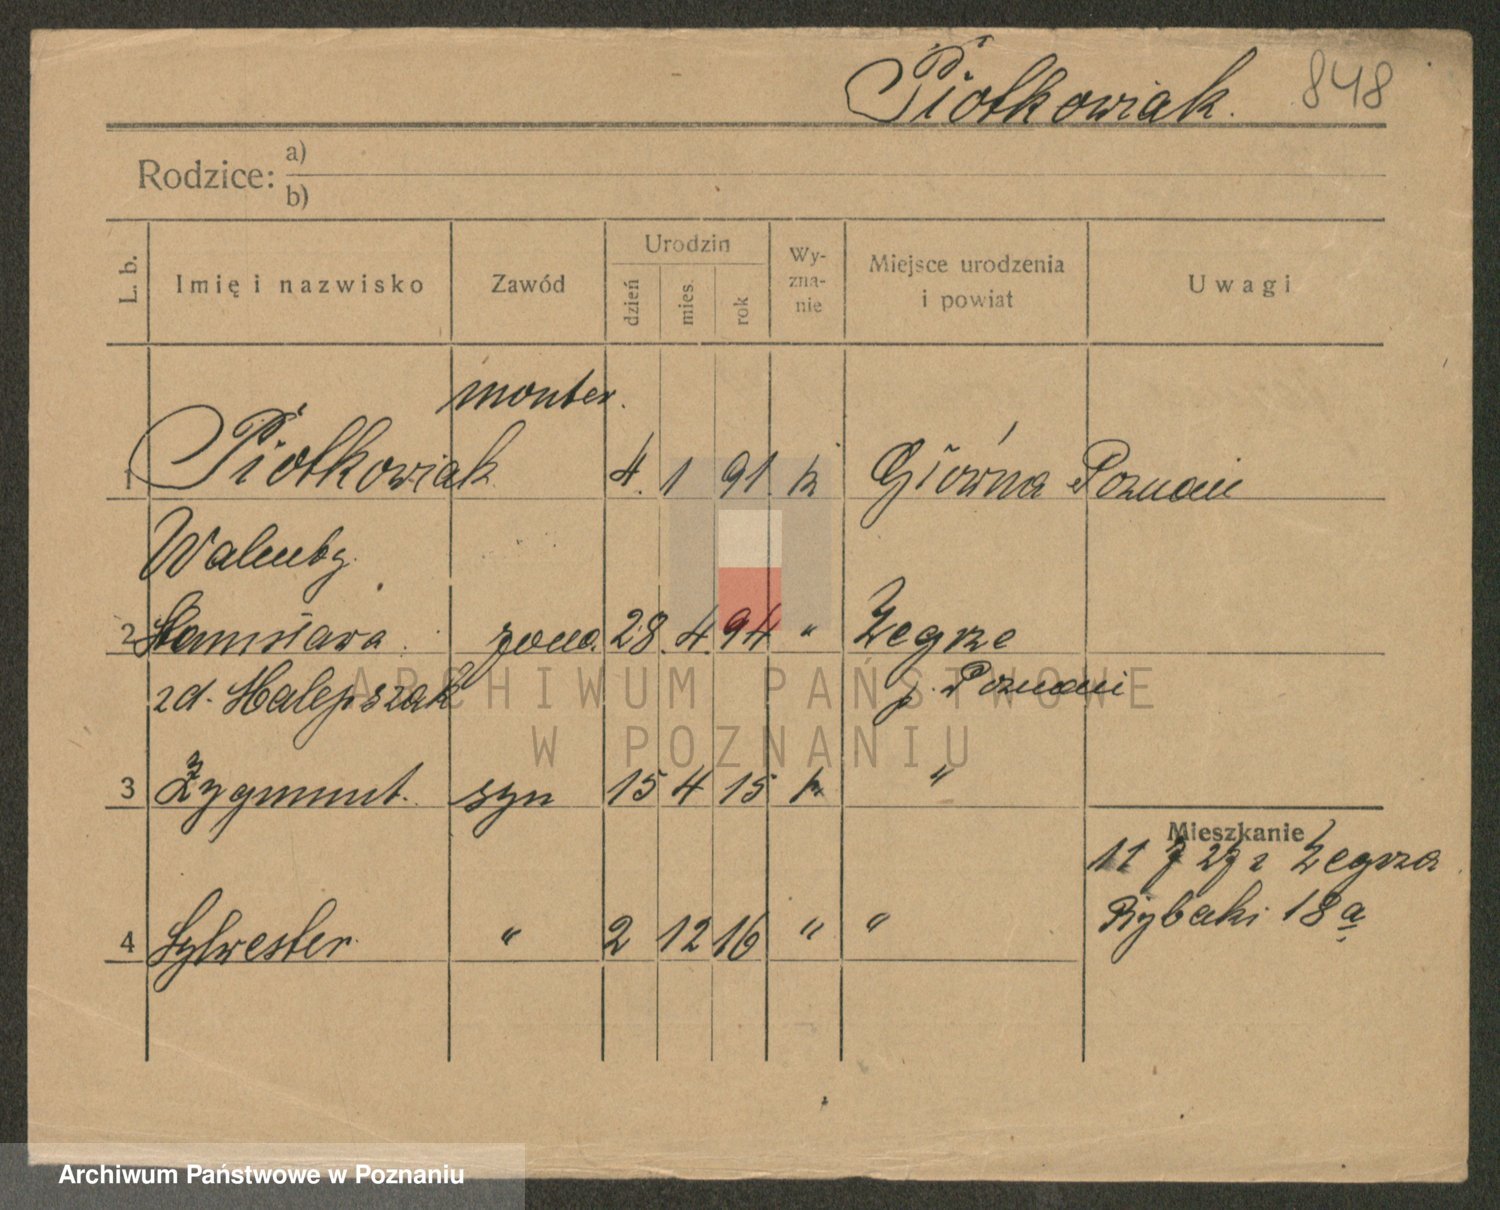 Piotkowiak. 848
Rodzice: a)
b)
L. b. Imię i nazwisko Zawód Urodzin dzień mies. rok Wy-zna-nie Miejsce urodzenia i powiat Uwagi
monter.
1 Piotkowiak 4. 1 91. k Główna Poznań
Walenty.
2 Stanisława żona. 28. 4. 94 " Zegrze
zd. Malepszak p. Poznań
ARCHIWUM PAŃSTWOWE
W POZNANIU
3 Zygmunt. syn 15 4 15 k "
Mieszkanie
11 7 27 z Zegrza
Rybaki 18a
4 Sylwester " 2 12 16 " "
Archiwum Państwowe w Poznaniu